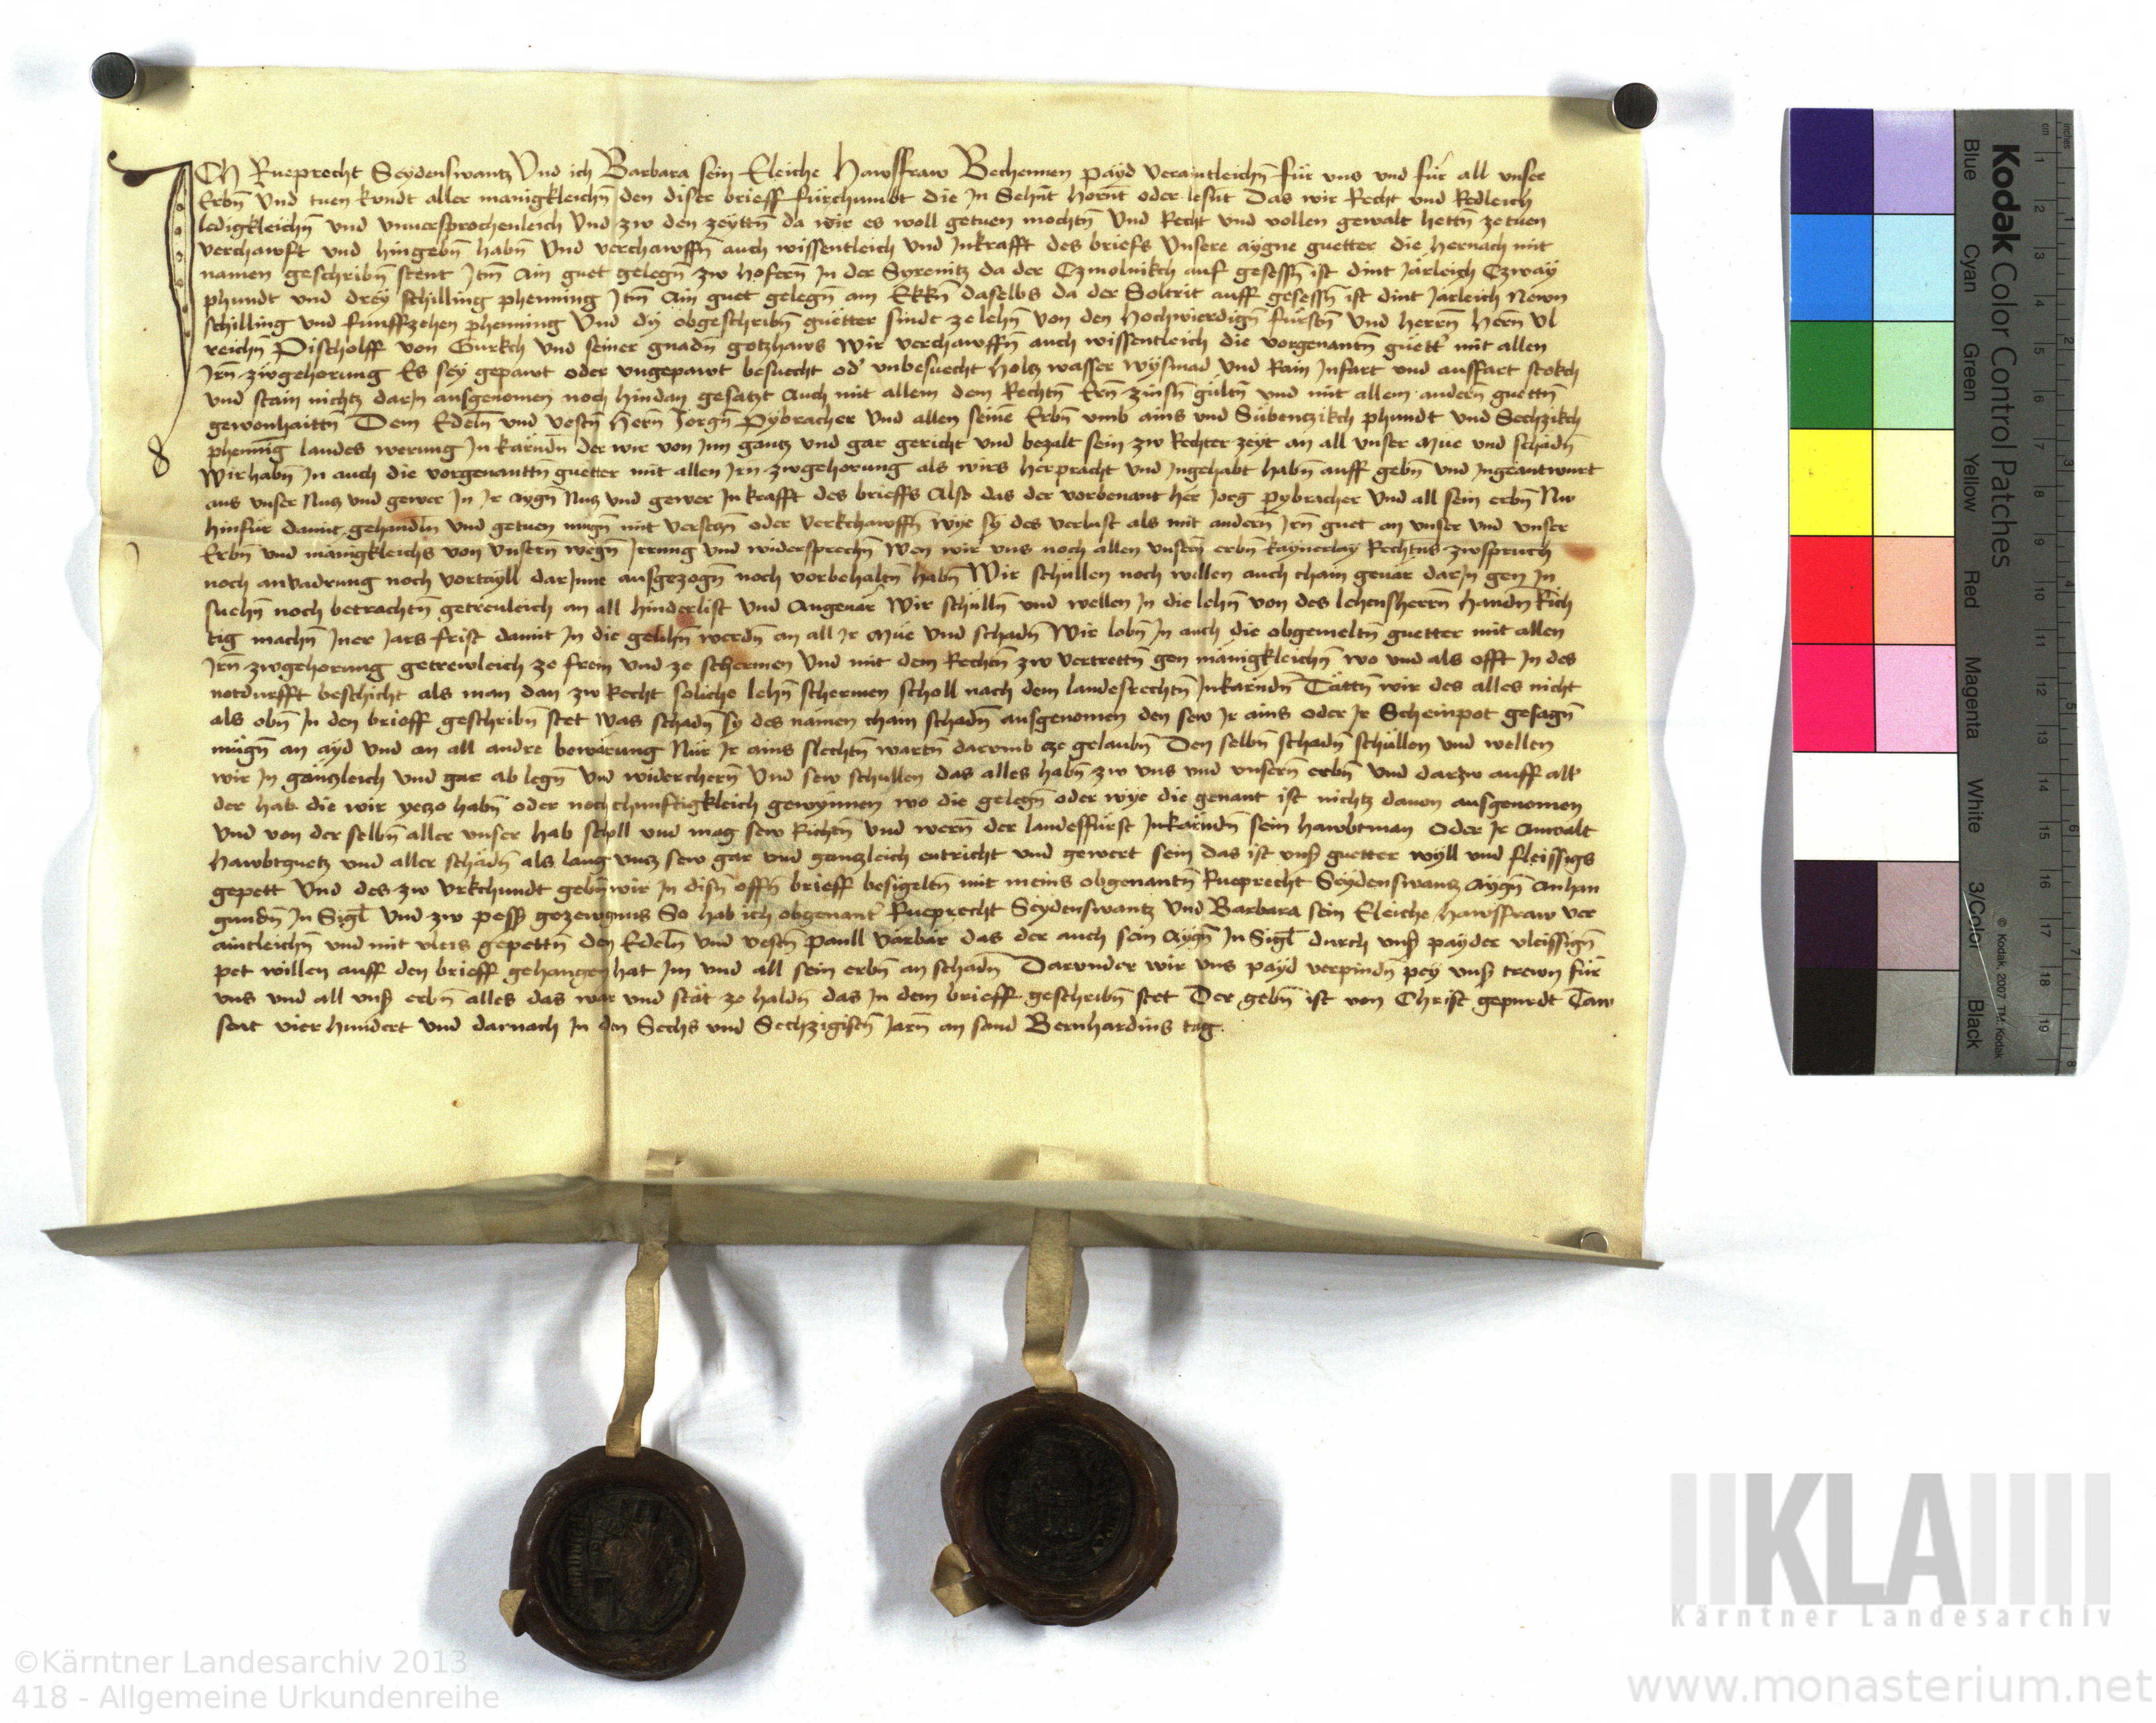 ICh Rueprecht Seydenswantz Vnd ich Barbara sein Eleiche Hawsfraw Bechennen payd Veraintleichn̄ für vns vnd für all vnser
Erbn̄ Vnd tuen kvndt aller manigkleichn̄ den diser brieff fürchumbt die Jn Sehn̄t hornt oder lesn̄t Das wir Recht vnd Redleich
ledigkleichn̄ vnd vnuersprochenleich Vnd zw den zeyttn̄ da wir es woll getuen mochtn̄ Vnd Recht vnd vollen gewalt hettn̄ ze tuen
verchawft vnd hingebn̄ habn̄ Vnd verchawffn̄ auch wissentleich vnd Jnkrafft des briefs Vnsere aygne guetter die hernach mit
namen geschribn̄ stent Jtm̄ Ain guet gelegn̄ zw hofern̄ Jn der Syrenitz da der Czmolnikch auf gesessn̄ ist dint Järleich Czway
phundt vnd drey schilling phenning Jtm̄ Ain guet gelegn̄ am Ekkn̄ daselbs da der Soltrit auff gesessn̄ ist dint Jarleich Newn
schilling vnd funffzehen phenning Vnd dy obgeschribn̄ guëtter sindt ze lehn̄ von den hochwierdign̄ fürstn̄ Vnd herrn̄ Hern̄ Vl
reichn̄ Pischolff von Gurkch vnd seiner gnadn̄ gotzhaws Wir verchawffn̄ auch wissentleich die vorgenantn̄ guëtt' mit allen
Jrn̄ zwgehorung Es sey gepawt oder vngepawt besuecht od' vnbesuecht holtz wasser wysmad Vnd Rain Jnfart vnd ausfart stokch
vnd stain nichtz darJn ausgenomen noch hindan gesatzt Auch mit allem dem Rechtn̄ Ern̄ zinsn̄ gültn̄ vnd mit allem andern̄ guettn̄
gewonhaittn̄ Dem Edeln̄ vnd vestn̄ Hern̄ Jorgn̄ Pybracher Vnd allen seinē Erbn̄ vmb ains vnd Sübentzikch phundt vnd Sechzikch
phenni̅g landes werung Jn kärndn̄ der wir von Jm gantz vnd gar gericht vnd bezalt sein zw Rechter zeyt an all vnser mue vnd schadn̄
Wir habn̄ Jn auch die vorgenanttn guetter mit allen Jrn zwgehorung als wirs herpracht vnd Jngehabt habn̄ auff gebn̄ vnd Jngeantwurt
aus vnser Nutz vnd gewer Jn Jr aygn̄ Nutz vnd gewer Jn krafft des brieffs Also das der vorbenant her Jorg pybracher Vnd all sein erbn̄ Nw
hinfür damit gehandln̄ vnd getuen mugn̄ mit versetzn̄ oder Verkchawffn̄ wye sy des verlust als mit andern̄ Jrn̄ guet an vnser vnd vnser
Erbn̄ vnd manigkleichs von vnsern̄ wegn̄ Jrrung vnd widersprechn̄ Wen wir vns noch allen vnsern̄ erbn̄ kaynerlay Rechtns zwspruch
noch anvadrung noch vortayll darJnne ausgezogn̄ noch vorbehaltn̄ habn̄ Wir schullen noch willen auch chain geuär darJn gen Jn
suehn̄ noch betrachtn̄ getreuleich an all hinderlist vnd Angeuär Wir schulln̄ vnd wellen Jn die lehn̄ von des lehensherrn̄ handn̄ Rich
tig machn̄ Jner Jars frist damit Jn die gelihn̄ werdn̄ an all Jr mue vnd schadn̄ Wir lobn̄ Jn auch die obgemeltn̄ guetter mit allen
Jrn̄ zwgehorung getrewleich ze frein vnd ze schermen Vnd mit dem Rechtn̄ zw vertrettn̄ gen mänigkleichn̄ wo vnd als offt Jn des
notdurfft beschicht als man dan zw Recht soliche lehn̄ schermen scholl nach dem landesrechtn̄ Jnkärndn̄ Tättn̄ wir des alles nicht
als obn̄ Jn den brieff geschribn̄ stet Was schadn̄ sy des namen chain schadn̄ ausgenomen den sew Jr ains oder Jr Scheinpot gesagn̄
mügn̄ an ayd vnd an all andre bewärung Nür Jr ains slechtn̄ wartn̄ darvmb ze gelaubn̄ Den selbn̄ schadn̄ schullen vnd wellen
wir Jn gäntzleich vnd gar ab legn̄ Vnd widerchern̄ Vnd sew schullen das alles habn̄ zw vns vnd vnsern̄ erbn̄ Vnd darzw auff all'
der hab die wir yetzo habn̄ oder noch chunftigkleich gewynnen wo die gelegn̄ oder wye die genant ist nichtz dauon ausgenomen
Vnd von der selbn̄ aller vnser hab scholl vnd mag sew Richtn̄ Vnd wern̄ der landesfürst Jnkärndn̄ sein hawbtman Oder Jr Anwalt
Hawbtguetz vnd aller schädn̄ als lang vntz sew gar vnd gantzleich entricht vnd gewert sein das ist vnsß guetter wyll vnd fleissigs
gepett Vnd des zw Vrkchundt gebn̄ wir Jn disn̄ offn̄ brieff besigeltn̄ mit meins obgenantn̄ Rueprecht Seydenswantz Aygn̄ Anhan
gundn̄ Jn Sigl Vnd zw pessß gezewgnus So hab ich obgenant' Rueprecht Seydenswantz Vnd Barbara sein Eleiche Hawsfraw ver
aintleichn̄ vnd mit vleis gepettn̄ den Edeln̄ vnd vestn̄ Paull Värbär das der auch sein Aygn̄ Jn Sigl durch vnsß payder vleissign̄
pet willen auff den brieff gehangen hat Jm vnd all sein erbn̄ an schadn̄ Darvnder wir vns payd verpindn̄ pey vnsß trewn für
vns vnd all vnsß erbn̄ alles das war vnd stät ze haldn̄ das Jn dem brieff geschribn̄ stet Der gebn̄ ist von Christ gepurdt Taw
sent vier hundert vnd darnach Jn den Sechs vnd Sechzigistn̄ Jarn̄ an sand Bernhardins tag.
Kodak Color Control Patches
Blue Cyan Green Yellow Red Magenta White 3/Color Black
© Kodak, 2007 TM: Kodak
cm 1 2 3 4 5 6 7 8 9 10 11 12 13 14 15 16 17 18 19
inches 1 2 3 4 5 6 7 8
KLA
Kärntner Landesarchiv
©Kärntner Landesarchiv 2013
418 - Allgemeine Urkundenreihe
www.monasterium.net